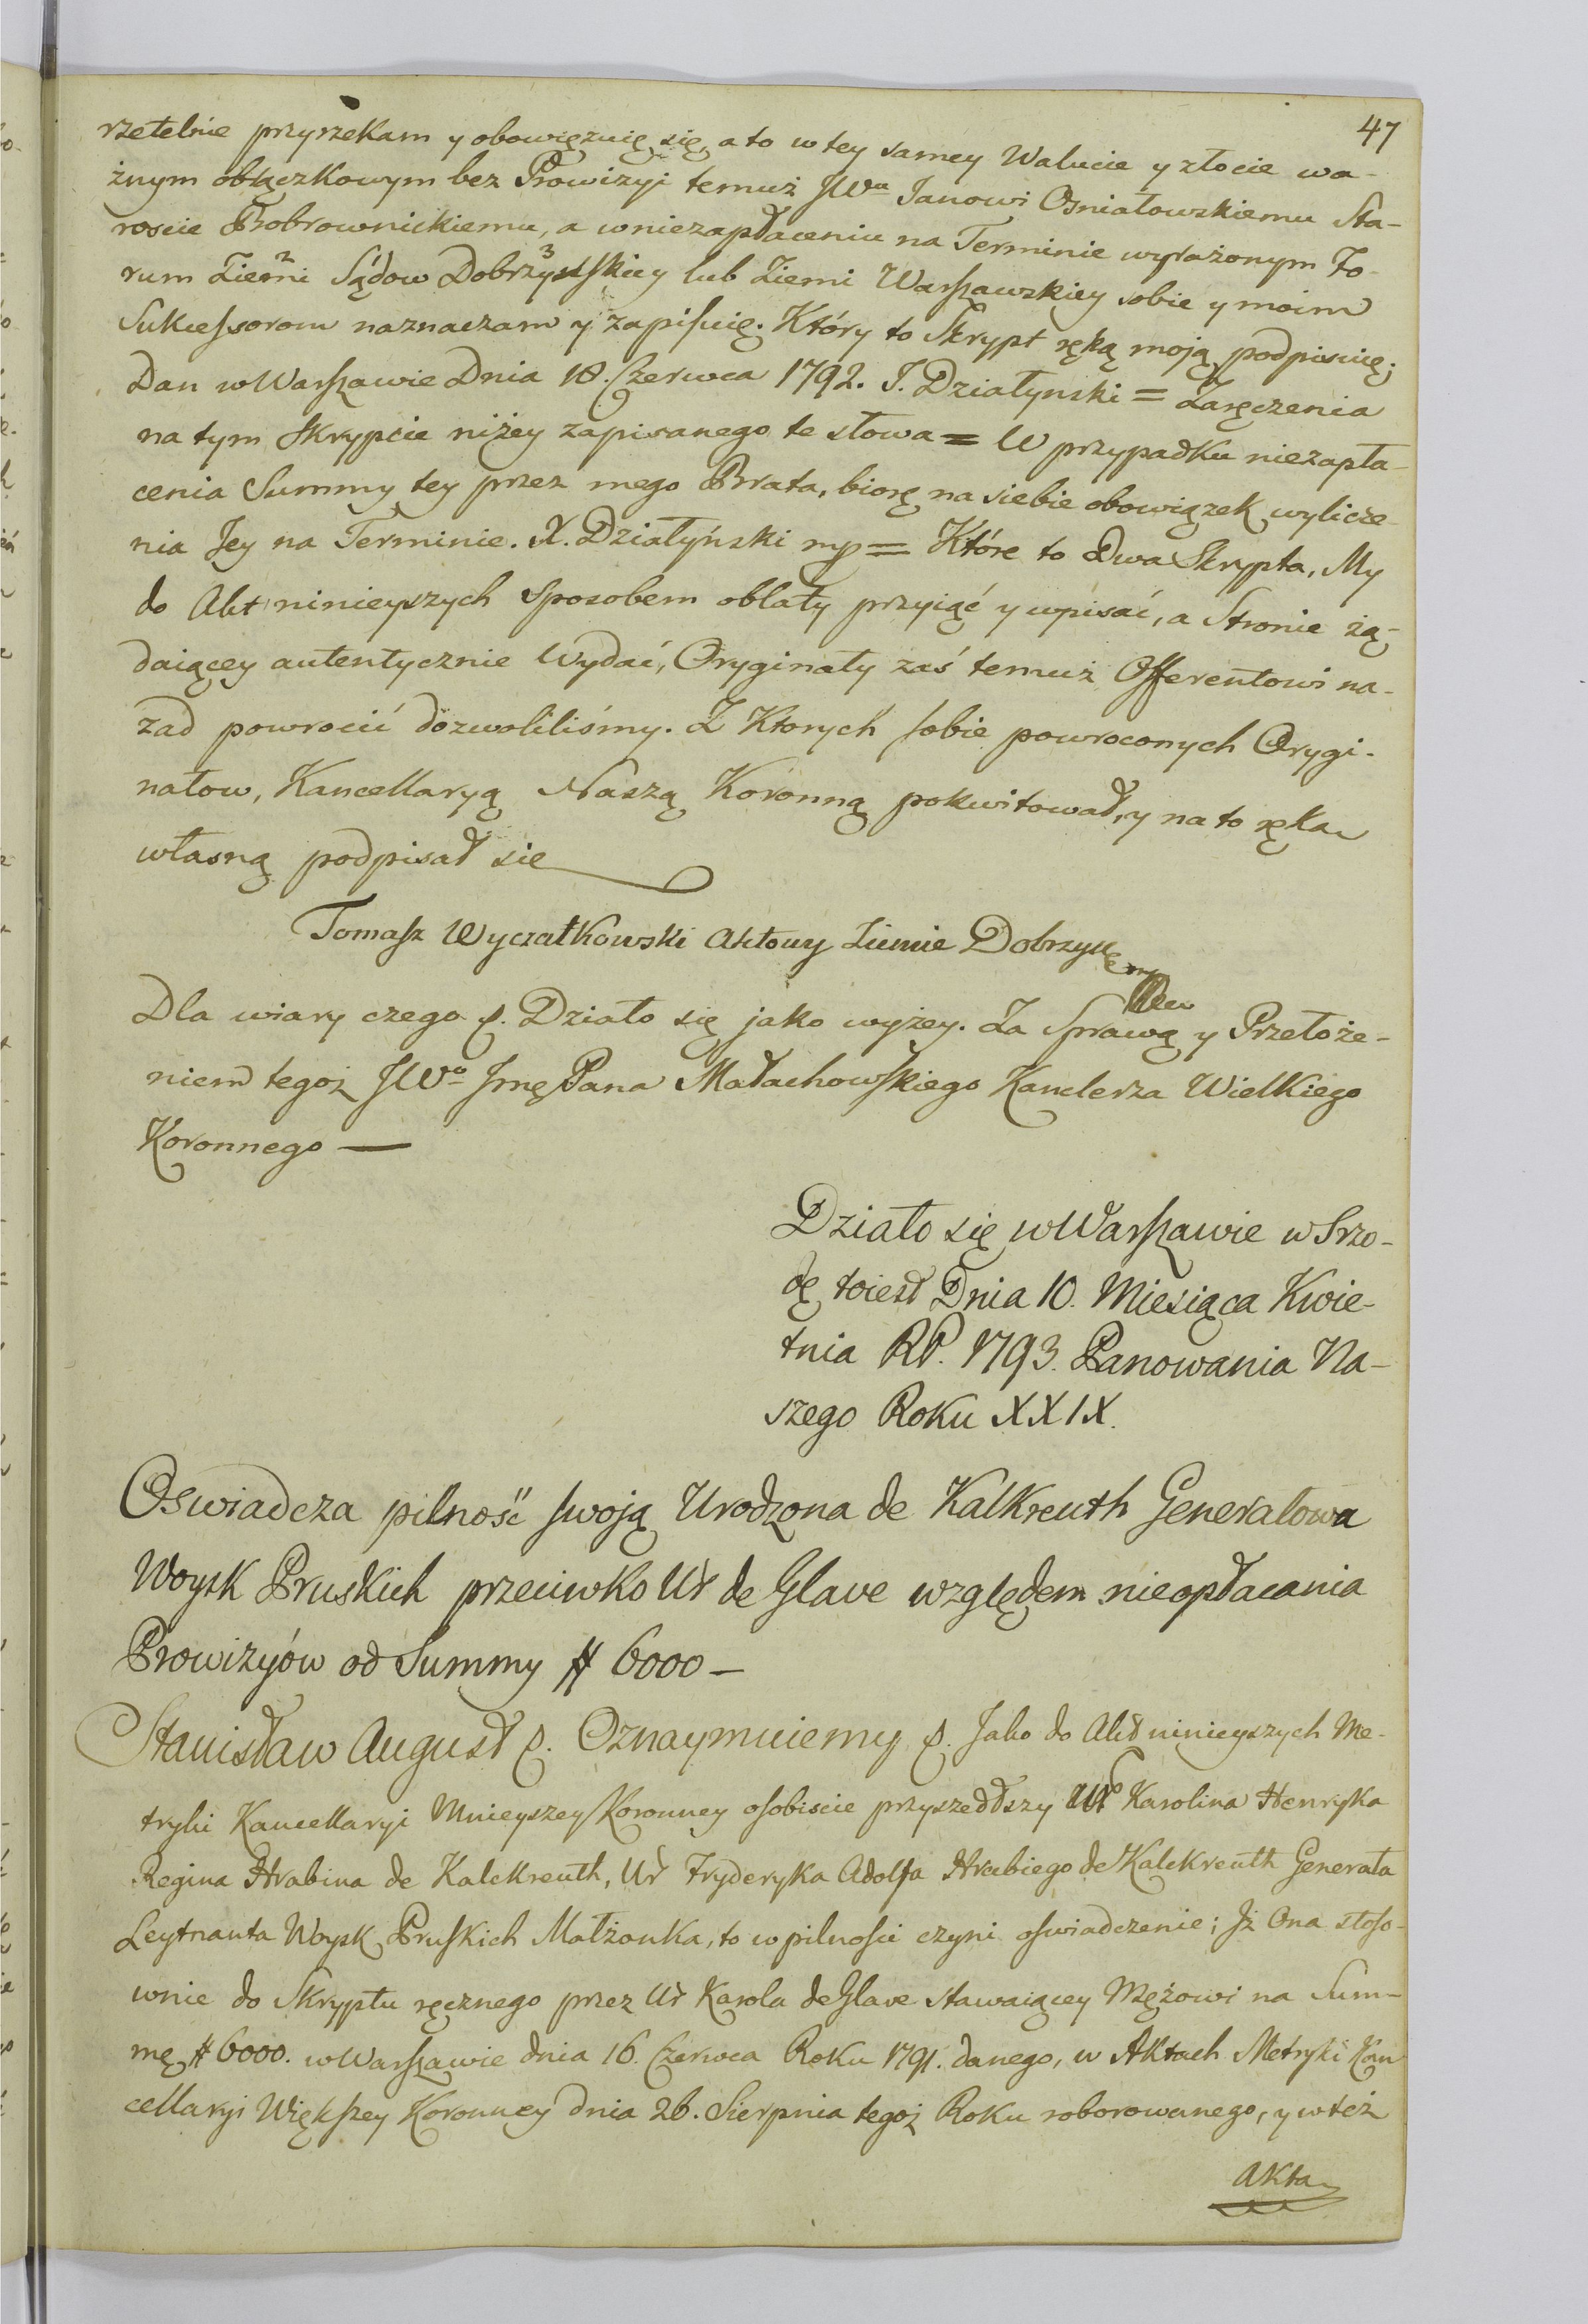 47
rzetelnie przyrzekam y obowięzuię się, a to w tey samey Walucie y złocie wa-
żnym obłączkowym bez Prowizyi temuż JWu Janowi Osniałowskiemu Sta-
roscie Bobrownickiemu, a w niezapłaceniu na Terminie wyrażonym Fo-
rum Ziemi 2 Sądow Dobrzyńskiey 3 lub Ziemi Warszawskiey sobie y moim
Sukcessorom naznaczam y zapisuię. Który to Skrypt ręką moją podpisuię;
Dan w Warszawie Dnia 18. Czerwca 1792. J. Działynski = Zaręczenia
na tym Skrypcie niżey zapisanego te słowa = W przypadku niezapła-
cenia Summy tey przez mego Brata, biorę na siebie obowiązek wylicze-
nia Jey na Terminie. X. Działyński mp = Które to Dwa Skrypta, My
do Akt ninieyszych sposobem oblaty przyiąć y wpisać, a Stronie żą-
daiącey autentycznie Wydać, Oryginały zaś temuż Offerentowi na-
zad powrocić dozwoliliśmy. Z Ktorych sobie powroconych Orygi-
nałow, Kancellaryą Naszą Koronną pokwitował, y na to ręką
własną podpisał się
Tomasz Wyczałkowski Aktowy Ziemie Dobrzyn
Dla wiary czego p. Działo się jako wyżey. Za Sprawą y Przełoże-
niem tegoż JWo Jmę Pana Małachowskiego Kanclerza Wielkiego
Koronnego —
Działo się w Warszawie w Srzo-
dę toiest Dnia 10. Miesiąca Kwie-
tnia RP. 1793. Panowania Na-
szego Roku XXIX.
Oswiadcza pilność swoją Urodzona de Kalkreuth Generałowa
Woysk Pruskich przeciwko Ur de Glave względem nieopłacania
Prowizyów od Summy # 6000 —
Stanisław August p. Oznaymuiemy p. Jako do Akt ninieyszych Me-
tryki Kancellaryi Mnieyszey Koronney osobiscie przyszedłszy Ur Karolina Henryka
Regina Hrabina de Kalckreuth, Ur Fryderyka Adolfa Hrabiego de Kalckreuth Generała
Leytnanta Woysk Pruskich Małżonka, to w pilności czyni oswiadczenie; Jż Ona stoso-
wnie do Skryptu ręcznego przez Ur Karola de Glave stawaiącey Mężowi na Sum-
mę # 6000. w Warszawie dnia 16. Czerwca Roku 1791. danego, w Aktach Metryki Kan
cellaryi Większey Koronney dnia 26. Sierpnia tegoż Roku roborowanego, y w też
Akta